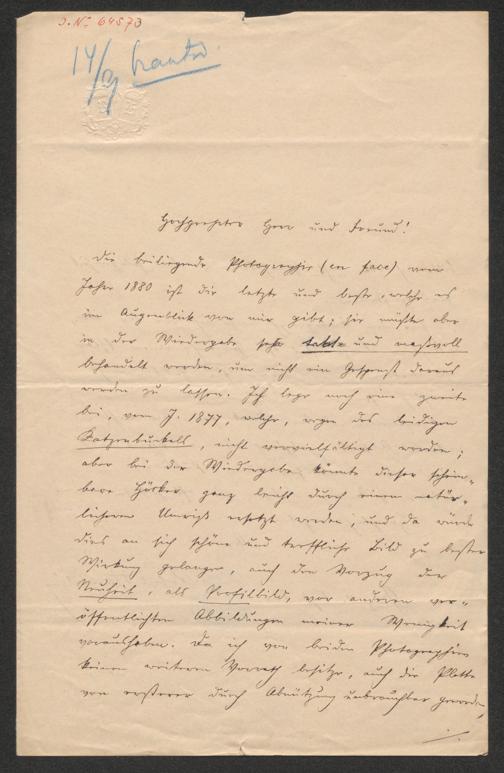 J. Nr 64573
14/2
Hochgeehrter Herr und Freund!
Die beiliegende Photographie (en face) vom
Jahre 1880 ist die letzte und beste, welche es
im Augenblick von mir gibt; sie müßte aber
in der Wiedergabe sehr takt- und maßvoll
behandelt werden, um nicht ein Gespenst daraus
werden zu lassen. Ich lege noch eine zweite
bei, vom J. 1877, welche, wegen des leidigen
Katzenbuckels, nicht vervielfältigt worden;
aber bei der Wiedergabe könnte dieser schein-
bare Höcker ganz leicht durch einen natür-
licheren Umriß ersetzt werden, und da würde
dies an sich schöne und treffliche Bild zu bester
Wirkung gelangen, auch den Vorzug der
Neuheit, als Profilbild, vor anderen ver-
öffentlichten Abbildungen meiner Wenigkeit
voraushaben. Da ich von beiden Photographien
keinen weiteren Vorrath besitze, auch die Platte
von ersterer durch Abnützung unbrauchbar geworden,